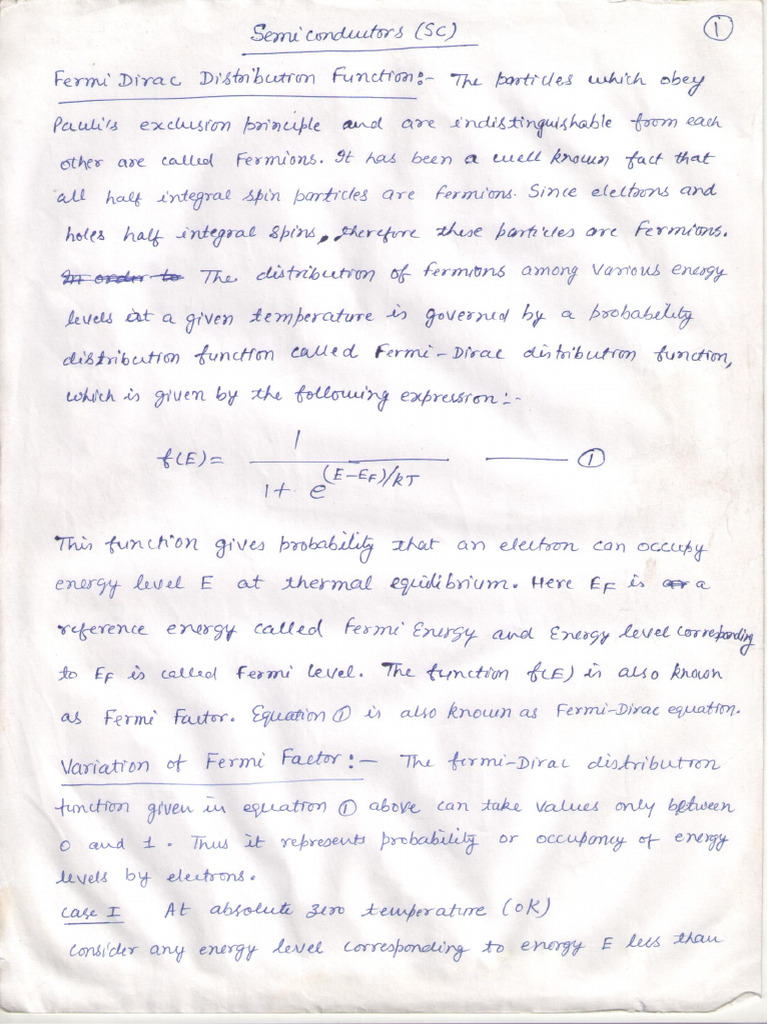 Semiconductors (SC)
①
Fermi Dirac Distribution Function:- The particles which obey
Pauli's exclusion principle and are indistinguishable from each
other are called Fermions. It has been a well known fact that
all half integral spin particles are fermions. Since elelbons and
holes half integral spins, therefore these particles are Fermions.
In order to The distribution of fermions among various energy
levels at a given temperature is governed by a probability
distribution function called Fermi-Dirac distribution function,
which is given by the following expression:-
f(E) = 1 / (1 + e^((E-EF)/kT)) —— ①
This function gives probability that an electron can occupy
energy level E at thermal equidibrium. Here EF is a
reference energy called Fermi Energy and Energy level corresponding
to EF is called Fermi level. The function f(E) is also known
as Fermi Factor. Equation ① is also known as Fermi-Dirac equation.
Variation of Fermi Factor:- The fermi-Dirac distribution
function given in equation ① above can take values only between
0 and 1. Thus it represents probability or occupancy of energy
levels by electrons.
Case I At absolute zero temperature (0K)
Consider any energy level corresponding to energy E less than